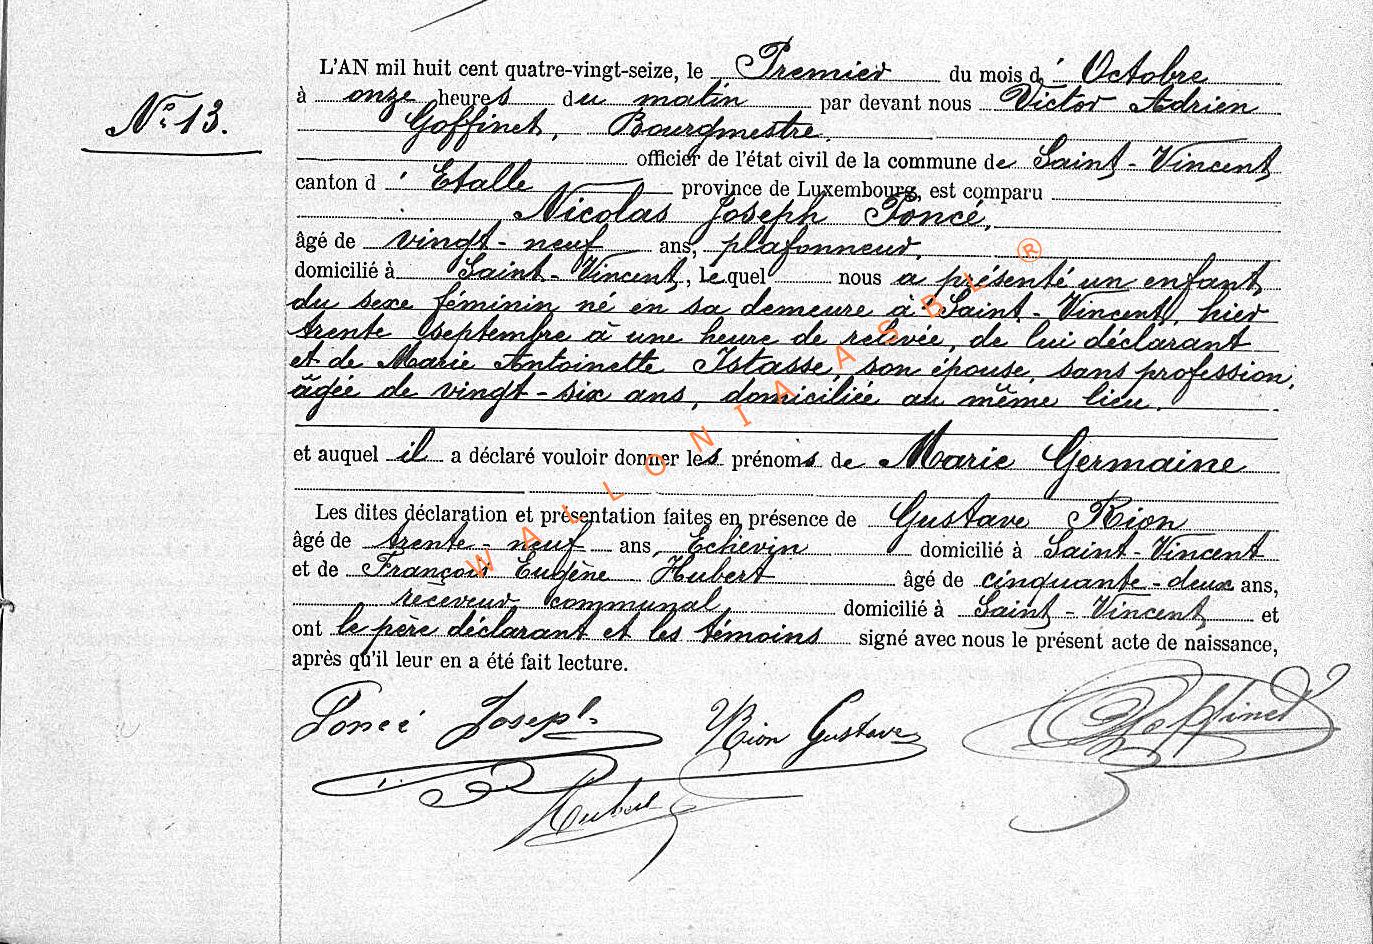 L'AN mil huit cent quatre-vingt-seize, le Premier du mois d' Octobre
N° 13.
à onze heures du matin par devant nous Victor Adrien
Goffinet, Bourgmestre,
officier de l'état civil de la commune de Saint-Vincent
canton d' Etalle province de Luxembourg, est comparu
Nicolas Joseph Poncé,
âgé de vingt-neuf ans, plafonneur,
domicilié à Saint-Vincent, lequel nous a présenté un enfant
du sexe féminin né en sa demeure à Saint-Vincent, hier
trente septembre à une heure de relevée, de lui déclarant
et de Marie Antoinette Istasse, son épouse, sans profession,
âgée de vingt-six ans, domiciliée au même lieu.
et auquel il a déclaré vouloir donner les prénoms de Marie Germaine
Les dites déclaration et présentation faites en présence de Gustave Rion
âgé de trente-neuf ans, Echevin domicilié à Saint-Vincent
et de François Eugène Hubert âgé de cinquante-deux ans,
receveur communal, domicilié à Saint-Vincent et
ont le père déclarant et les témoins signé avec nous le présent acte de naissance,
après qu'il leur en a été fait lecture.
Poncé Joseph Rion Gustave Goffinet
Hubert
WALLONIA ASBL ®